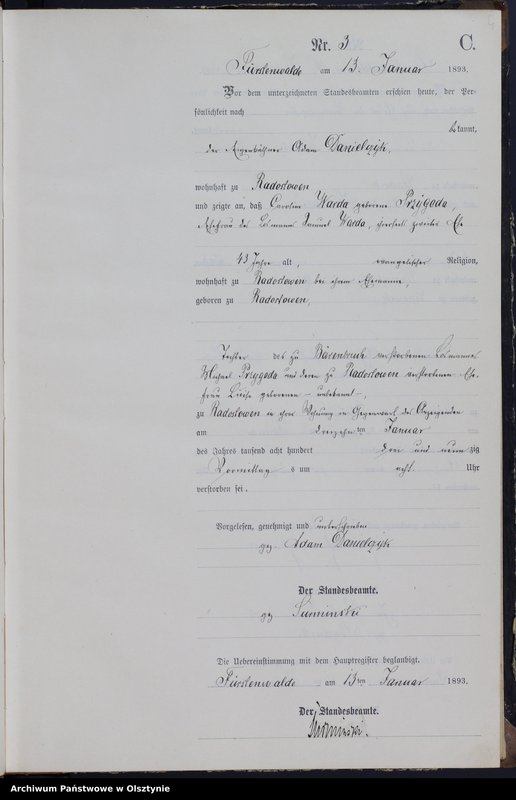 Nr. 3 C.
Fürstenwalde am 13. Januar 1893.
Vor dem unterzeichneten Standesbeamten erschien heute, der Per-
sönlichkeit nach
bekannt,
der Eigenkäthner Adam Danielzyk,
wohnhaft zu Radostowen
und zeigte an, daß Caroline Warda geborene Przygoda,
Ehefrau des Losmanns Samuel Warda, zweiter Ehe
43 Jahre alt, evangelischer Religion,
wohnhaft zu Radostowen bei ihrem Ehemanne,
geboren zu Radostowen,
Tochter des zu Bärenbruch verstorbenen Losmannes
Michael Przygoda und deren zu Radostowen verstorbenen Ehe-
frau Louise geborenen - unbekannt -,
zu Radostowen in ihrer Wohnung in Gegenwart des Anzeigenden
am dreizehnten Januar
des Jahres tausend acht hundert drei und neunzig
Vormittags um acht Uhr
verstorben sei.
Vorgelesen, genehmigt und unterschrieben
gez. Adam Danielzyk
Der Standesbeamte.
gez.
Die Uebereinstimmung mit dem Hauptregister beglaubigt.
Fürstenwalde am 13ten Januar 1893.
Der Standesbeamte.
Archiwum Państwowe w Olsztynie